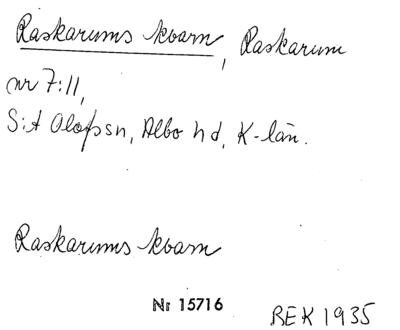 Raskarums kvarn, Raskarum
nr 7:11,
S:t Olofs sn, Albo hd, K-län.
Raskarums kvarn
Nr 15716
BEK 1935